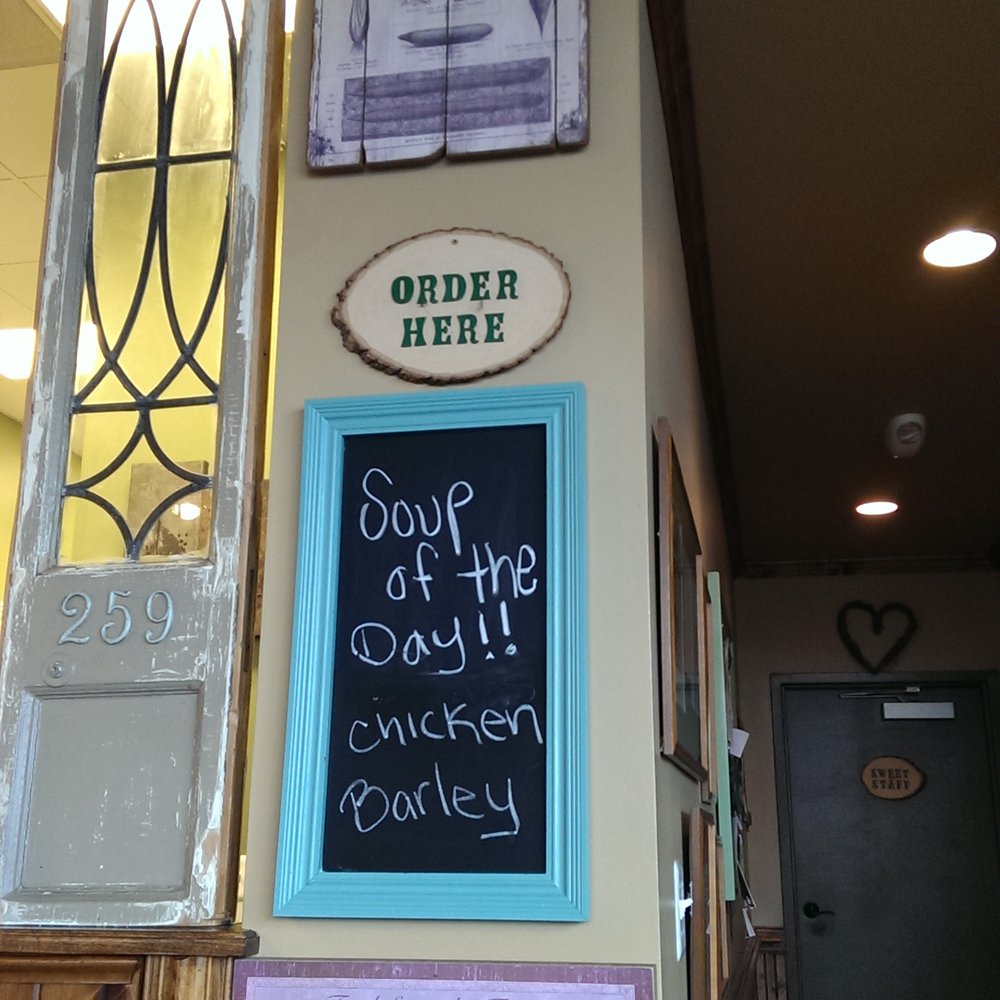 ORDER
HERE
Soup
of the
Day!!
chicken
Barley
259
SWEET
STAFF